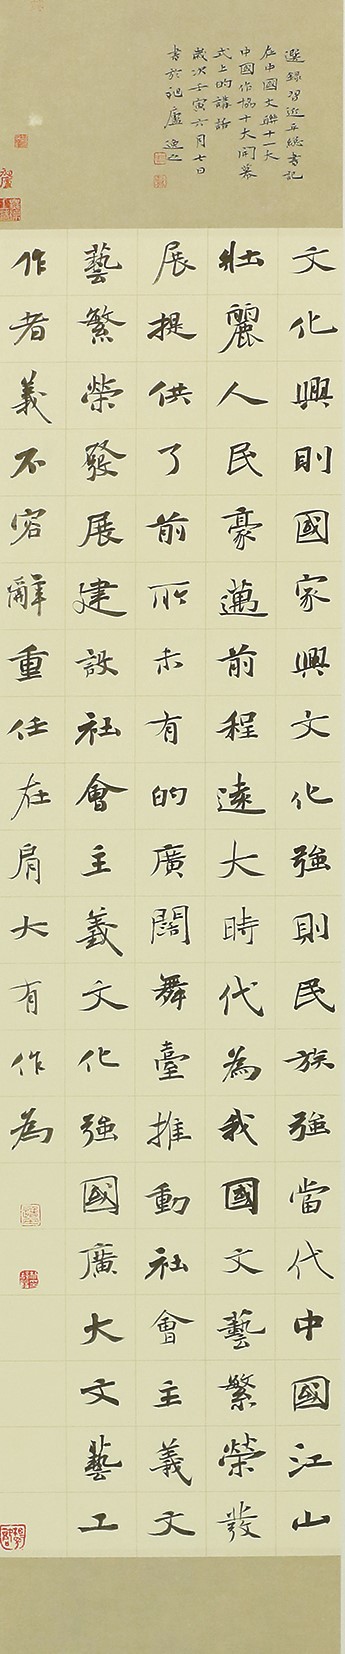 選錄習近平總書記
在中國文聯十一大
中國作協十大開幕
式上的講話
歲次壬寅六月七日
書於廬逸之
文化興則國家興文化強則民族強當代中國江山
壯麗人民豪邁前程遠大時代為我國文藝繁榮發
展提供了前所未有的廣闊舞臺推動社會主義文
藝繁榮發展建設社會主義文化強國廣大文藝工
作者義不容辭重任在肩大有作為